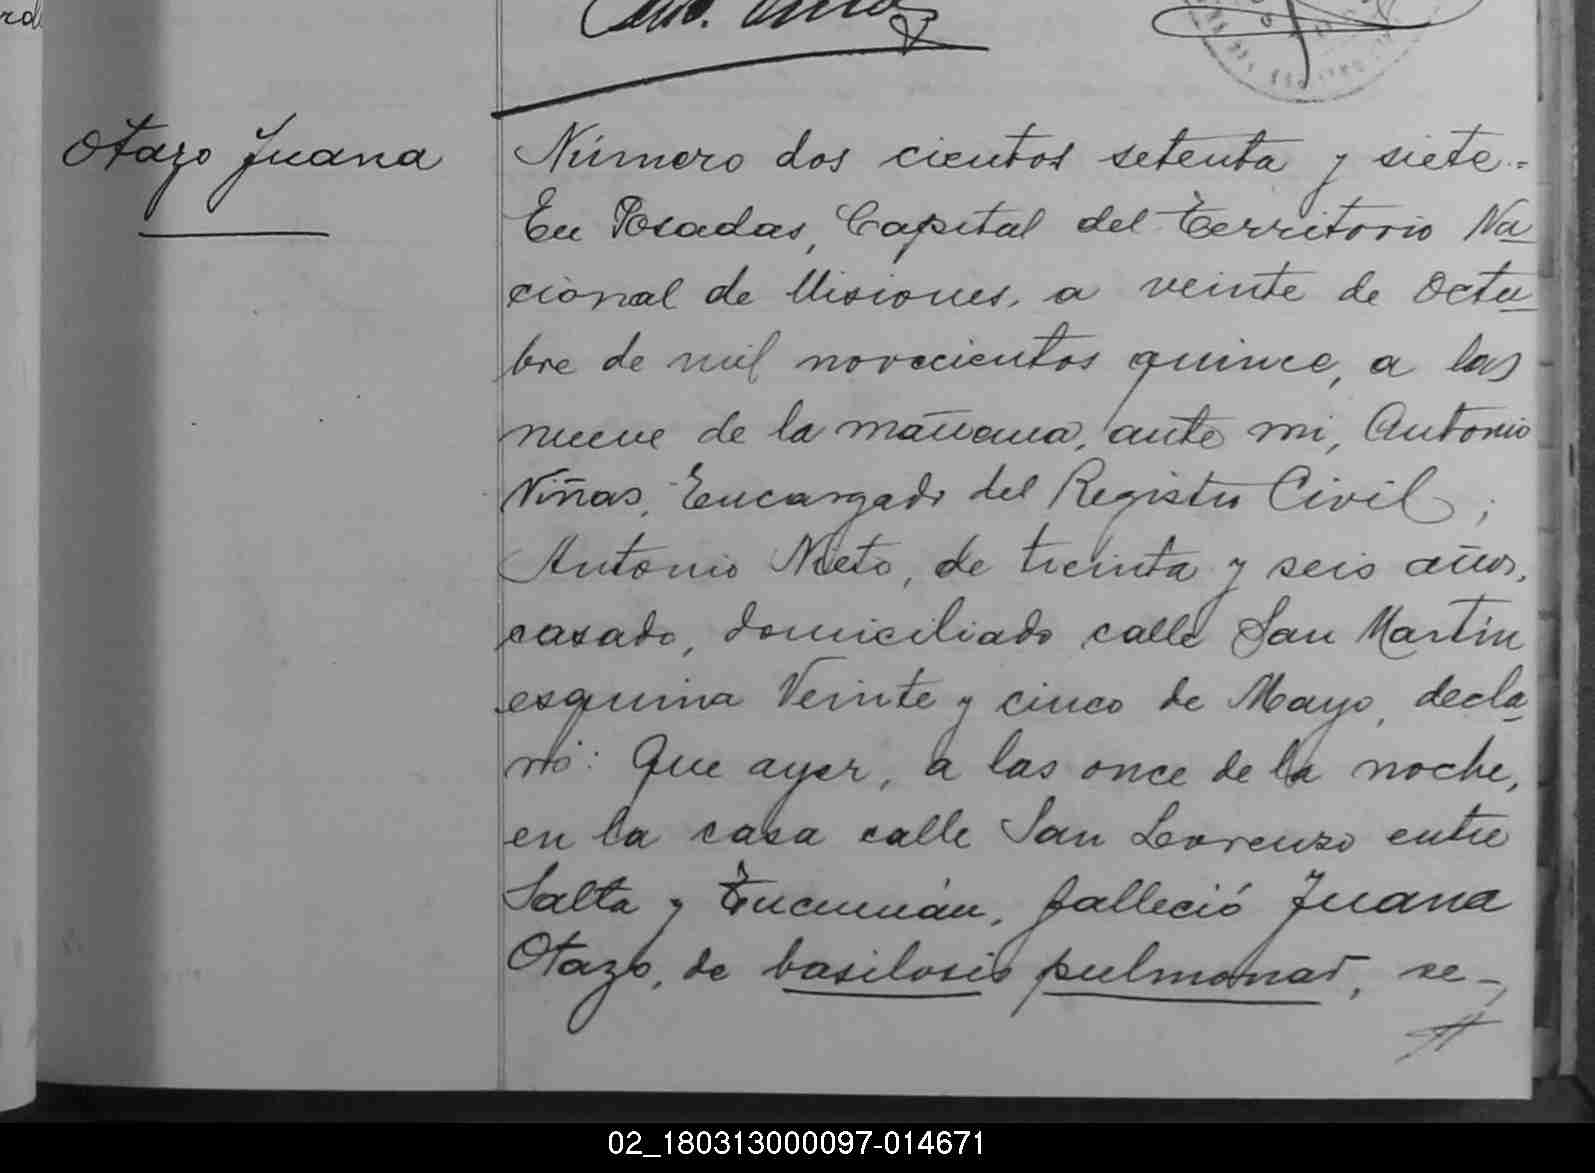 Otazo Juana
Número dos cientos setenta y siete.=
En Posadas, Capital del Territorio Na-
cional de Misiones, a veinte de Octu-
bre de mil novecientos quince, a las
nueve de la mañana, ante mi, Antonio
Viñas, Encargado del Registro Civil;
Antonio Nieto, de treinta y seis años,
casado, domiciliado calle San Martin
esquina Veinte y cinco de Mayo, decla-
ró: Que ayer, a las once de la noche,
en la casa calle San Lorenzo entre
Salta y Tucumán, falleció Juana
Otazo, de basilosis pulmonar, se-
02_180313000097-014671